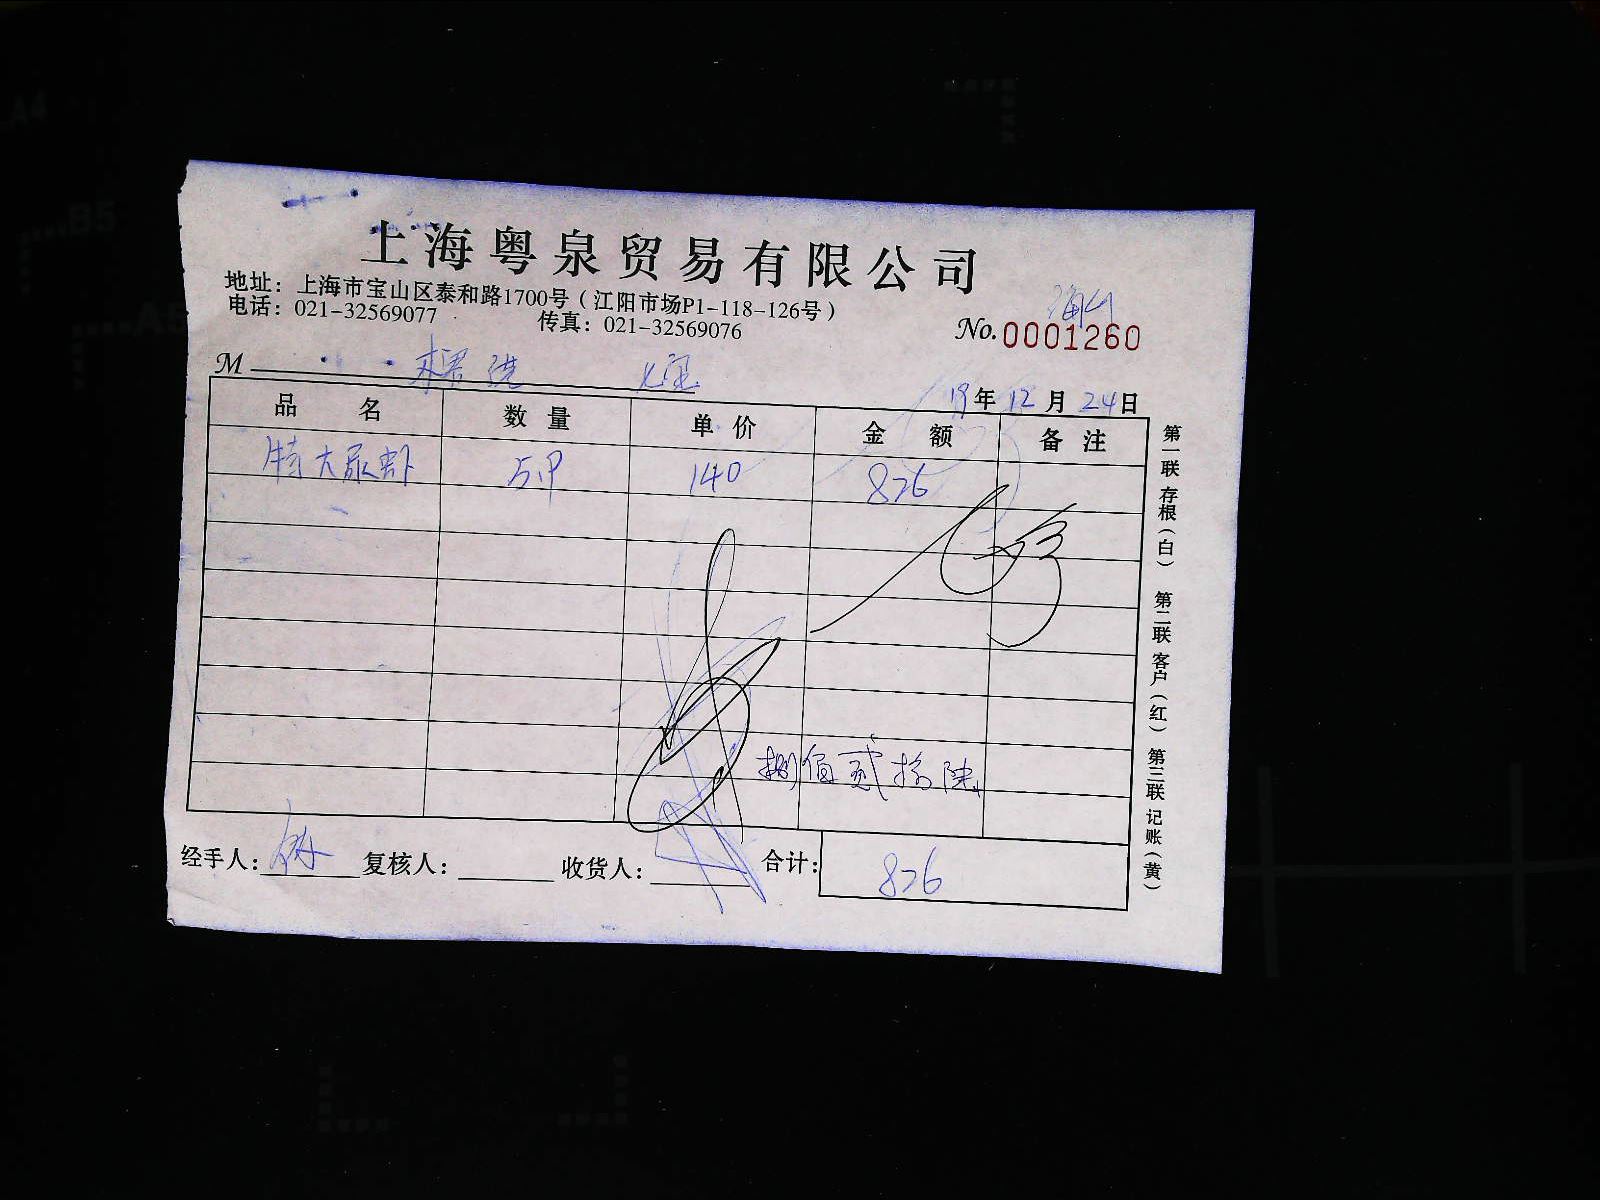 上海粤泉贸易有限公司
地址：上海市宝山区泰和路1700号（江阳市场P1-118-126号）
电话：021-32569077 传真：021-32569076
No. 0001260
M
19年12月24日
品名 数量 单价 金额 备注
特大尿虾 5.9 140 826
捌佰贰拾陆
经手人： 复核人： 收货人： 合计：826
第一联 存根（白） 第二联 客户（红） 第三联 记账（黄）
A4
B5
A5